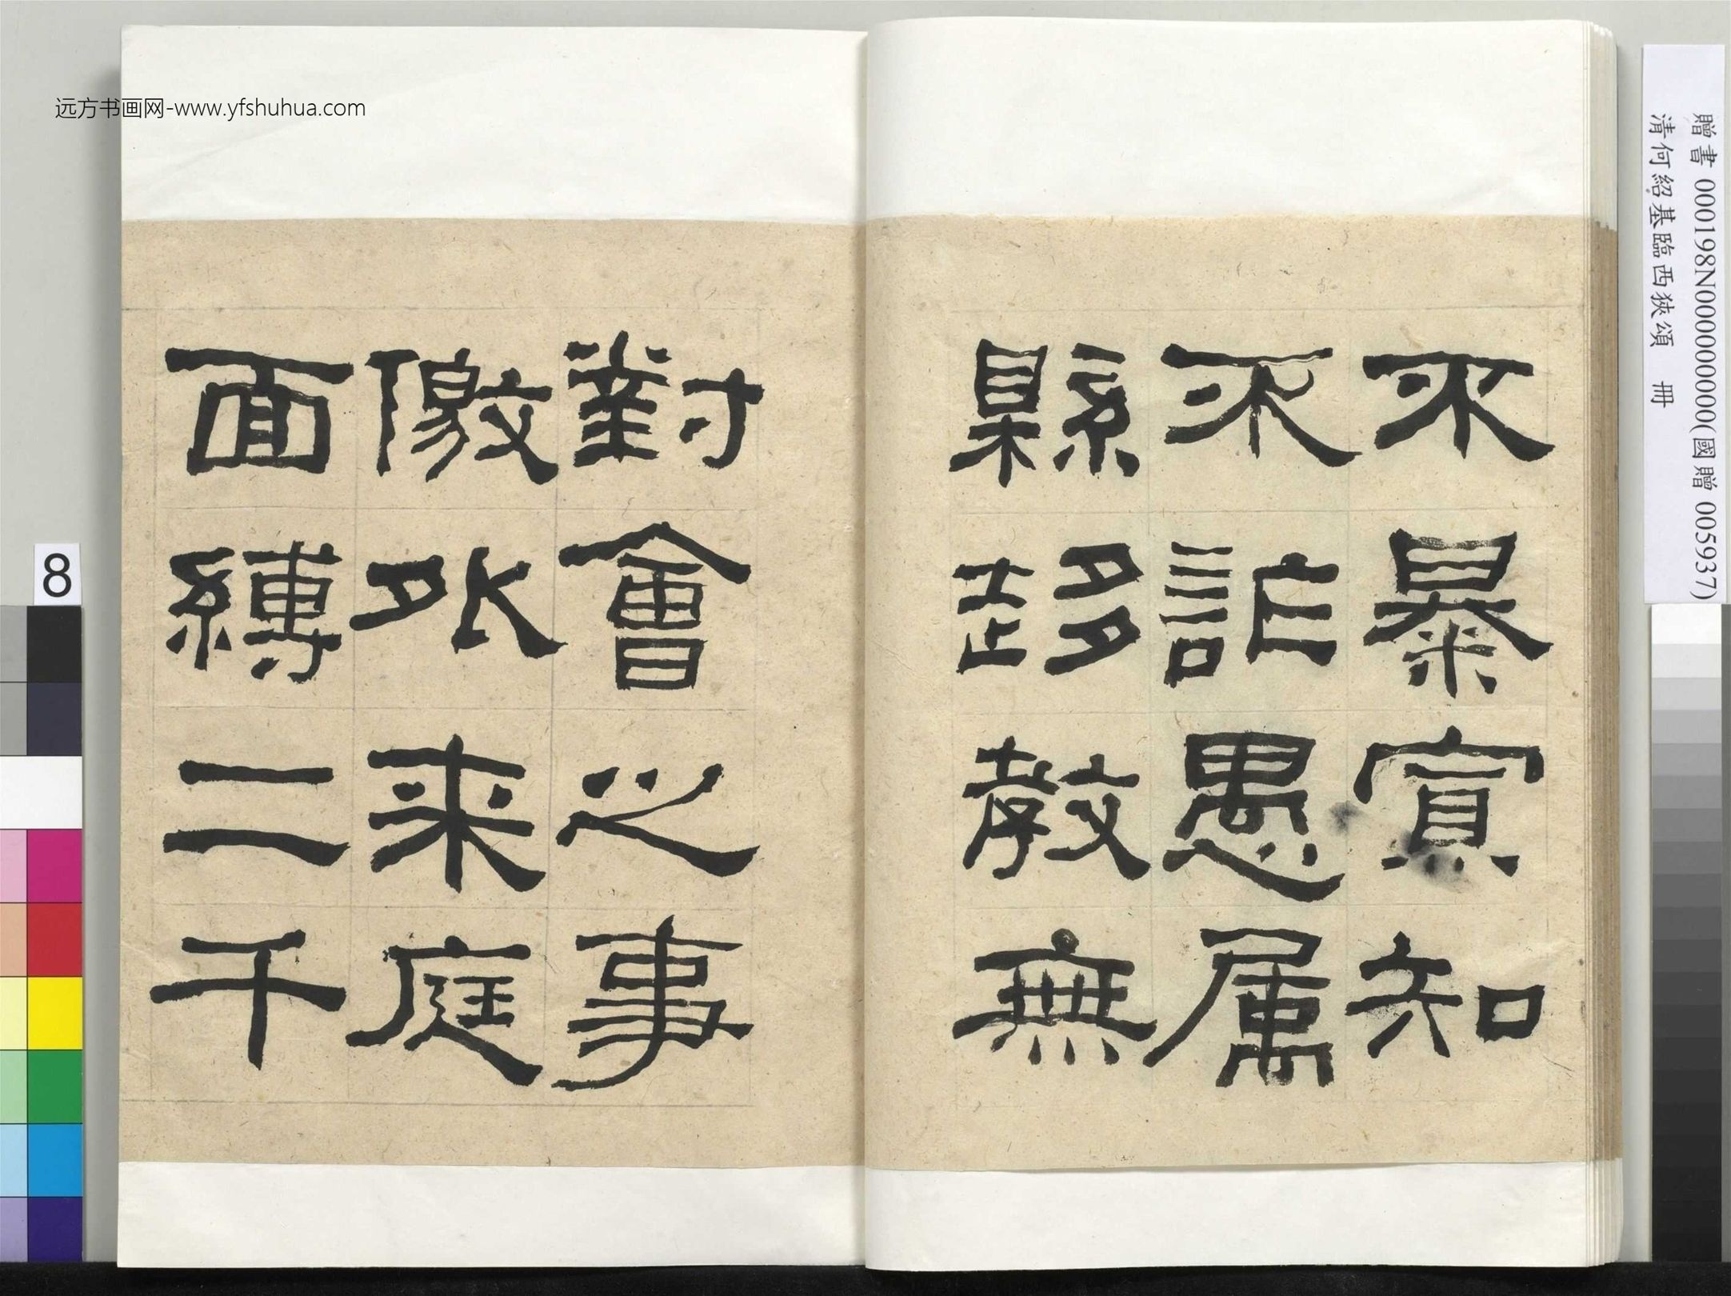 远方书画网-www.yfshuhua.com
贈書 000198N000000000(國贈 005937)
清何紹基臨西狹頌 冊
8
不暴寡知
不詐愚属
縣趍教無
對會之事
徼外来庭
面縛二千